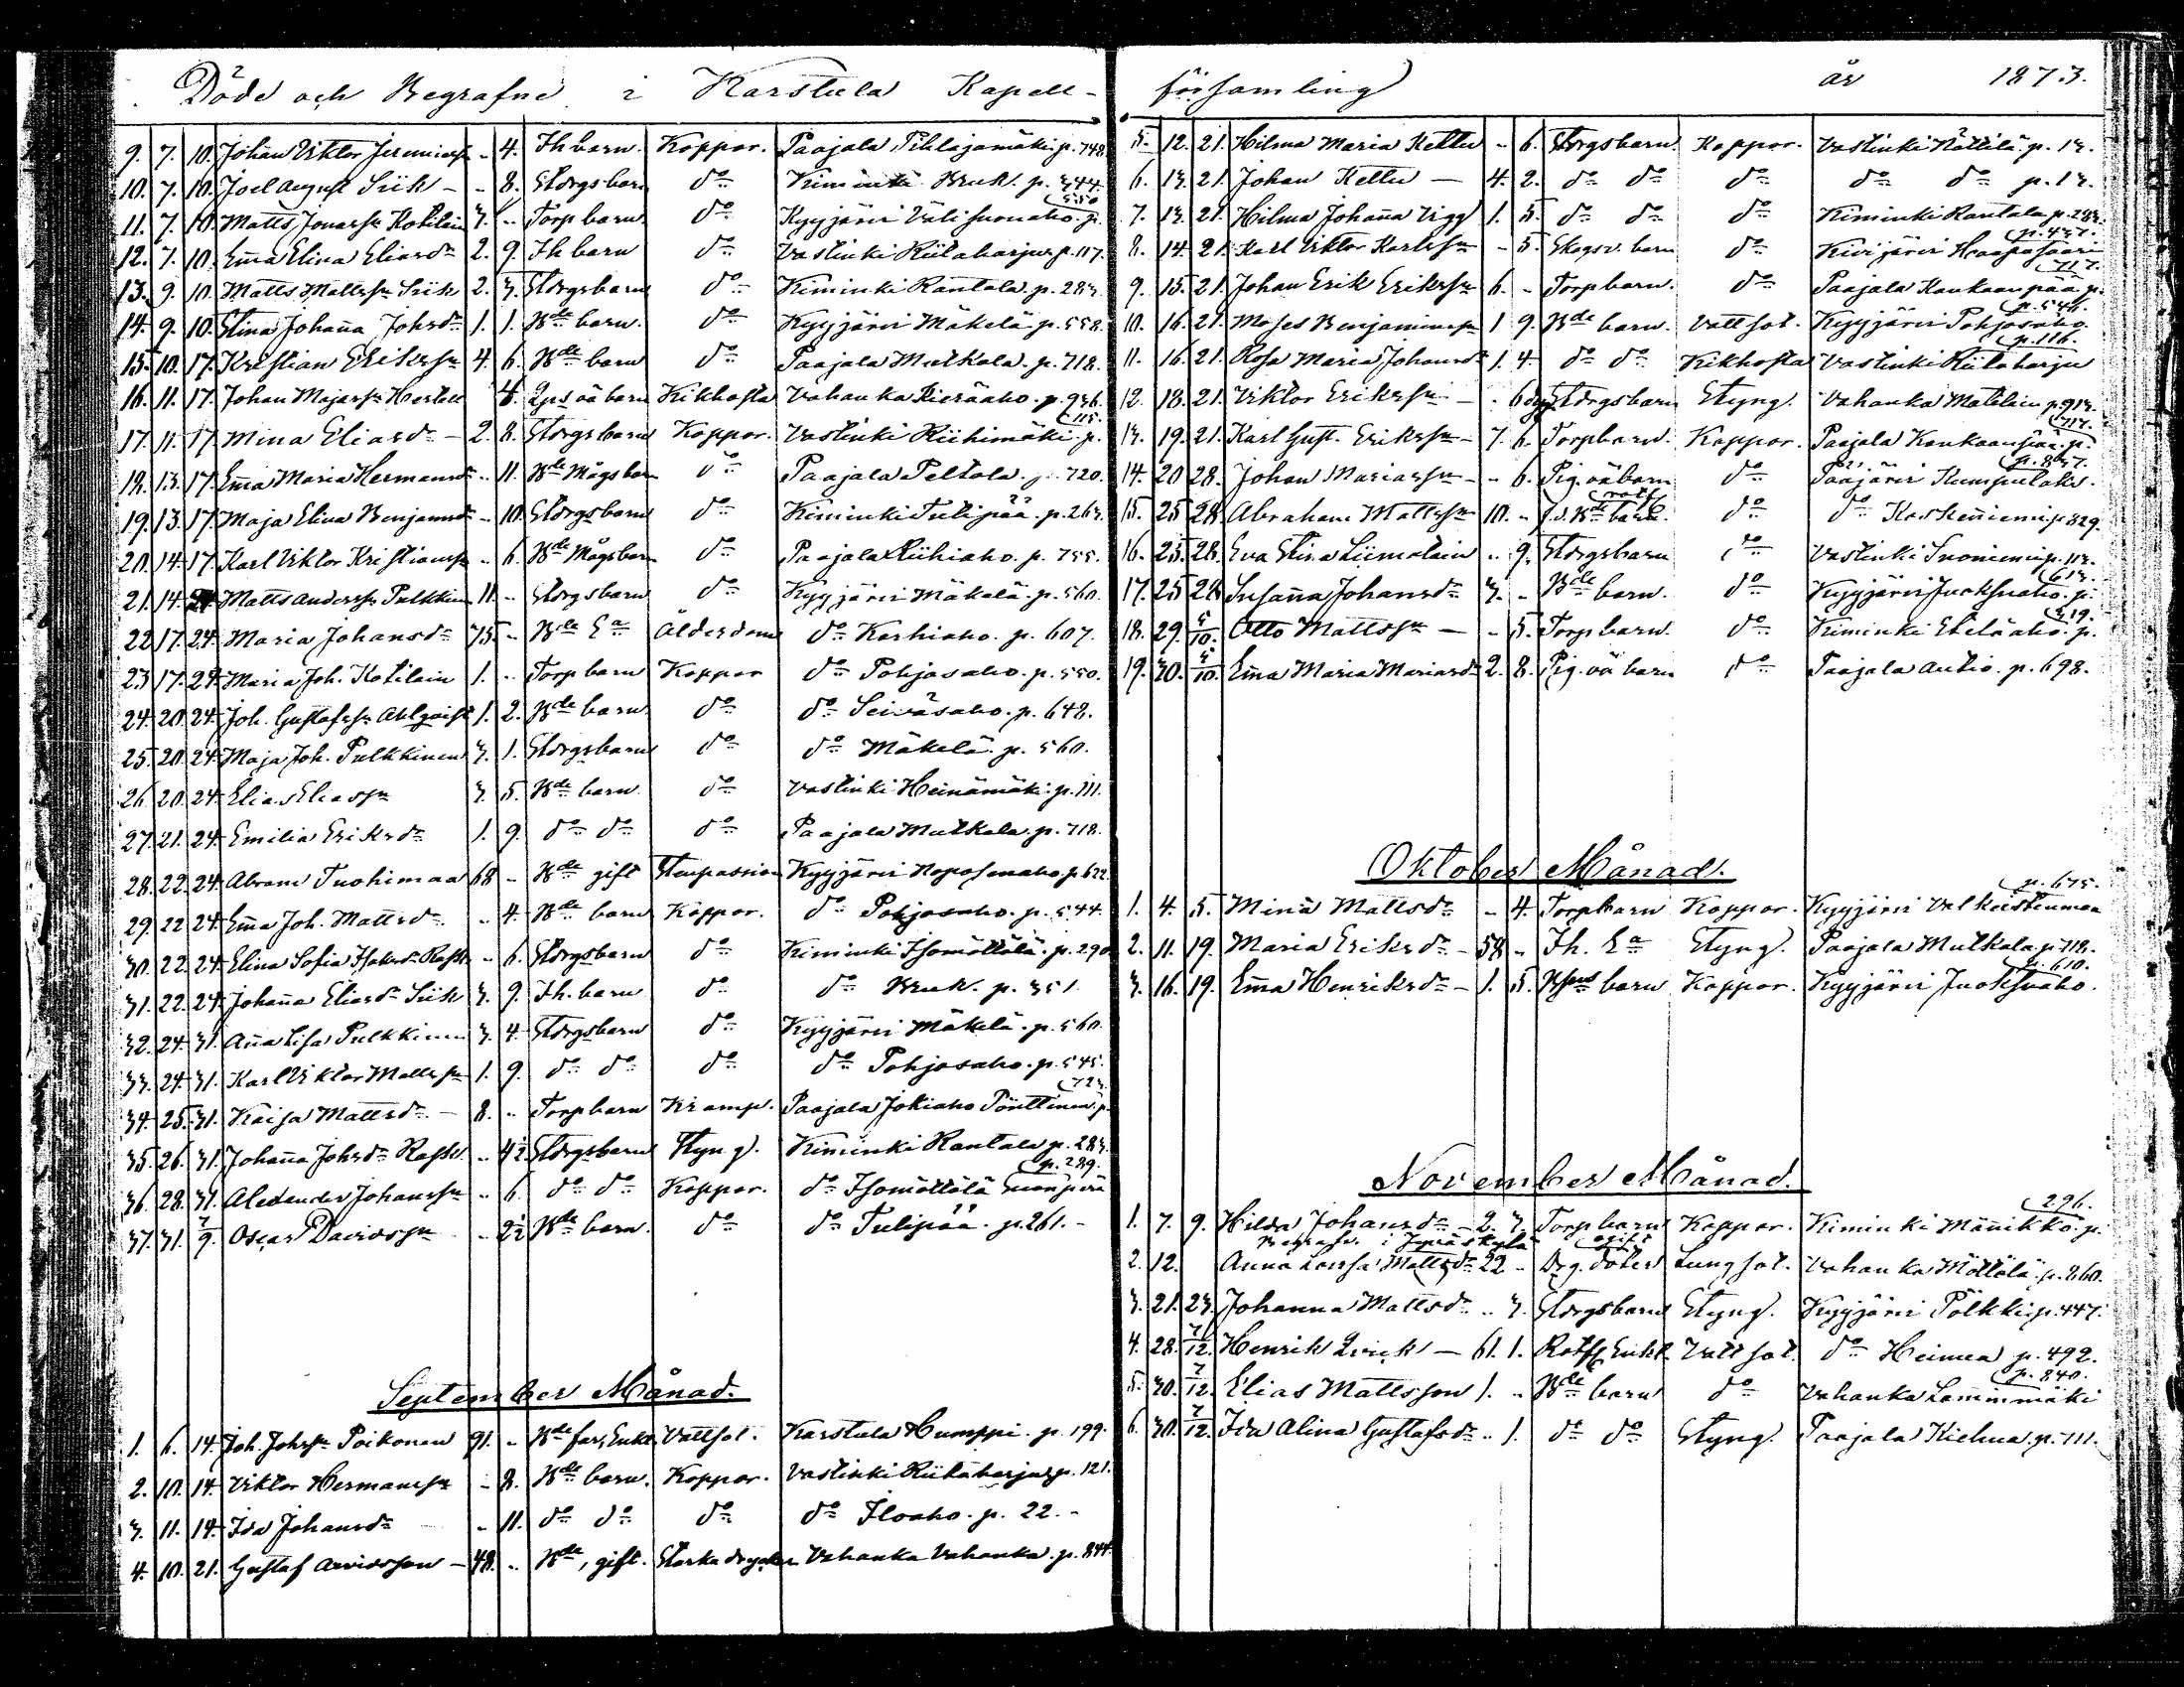 Döde och Begrafne i Karstula Kapell-
9. 7. 10. Johan Viktor Jeremiass. - 4. Ih barn. Koppor. Paajala Pihlajamäki p. 748
10. 7. 10. Joel August Siik - - 8. Stbrgsbarn do Kiminki Bruk. p. 344.
11. 7. 10. Matts Jonassn Kotilain 3. .. Torp barn do Kyyjärvi Välisuonaho. p. 550
12. 7. 10. Em̄a Elina Eliasdr 2. 9. Ih barn do Vastinki Riitaharju p. 117.
13. 9. 10. Matts Mattssn Siik 2. 3. Stbrgsbarn do Kiminki Rantala. p. 283.
14. 9. 10. Stina Johan̄a Johsdr 1. 1. Bde barn. do Kyyjärvi Mäkelä. p. 558.
15. 10. 17. Kristian Erikssn 4. 6. Bde barn do Paajala Mulkala. p. 718.
16. 11. 17. Johan Majassn Hertell 4. Gps oä barn Kikhosta Vahanka Kieräaho. p. 936.
17. 11. 17. Mina Eliasdr - 2. 8. Stbrgsbarn Koppor. Vastinki Riihimäki p. 115.
18. 13. 17. Em̄a Maria Hermansd .. 11. Bde Mågsbarn do Paajala Peltola. p. 720.
19. 13. 17. Maja Elina Benjamsd - 10. Stbrgsbarn do Kiminki Tulipää. p. 263.
20. 14. 17. Karl Viktor Kristianss - 6. Bde Mågsbarn do Paajala Riihiaho. p. 755.
21. 14. 24. Matts Anderss Pulkkin 11. .. Stbrgsbarn do Kyyjärvi Mäkelä. p. 560.
22. 17. 24. Maria Johansdr 75. - Bde Ea Ålderdom do Karhiaho. p. 607.
23. 17. 24. Maria Joh. Kotilain 1. .. Torp barn Koppor do Pohjasaho. p. 550.
24. 20. 24. Joh. Gustafssn Ahlqvist 1. 2. Bde barn. do do Seiväsaho. p. 648.
25. 20. 24. Maja Joh. Pulkkinen 3. 1. Stbrgsbarn do do Mäkelä. p. 560.
26. 20. 24. Elias Eliassn 3. 5. Bde barn. do Vastinki Heinämäki p. 111.
27. 21. 24. Emilia Eriksdr 1. 9. do do do Paajala Mulkala. p. 718.
28. 22. 24. Abram Tuohimaa 68 - Bde gift Stenpassion Kyyjärvi Noposenaho p. 622.
29. 22. 24. Em̄a Joh. Mattsdr .. 4. Bde barn Koppor. do Pohjasaho. p. 544.
30. 22. 24. Elina Sofia Isaksdr Rask - 6. Stbrgsbarn do Kiminki Isomöttölä. p. 290
31. 22. 24. Johan̄a Eliasdr Siik 3. 9. Ih. barn do do Bruk. p. 351
32. 24. 31. An̄a Lisa Pulkkinen 3. 4. Stbrgsbarn do Kyyjärvi Mäkelä. p. 560.
33. 24. 31. Karl Viktor Mattssn 1. 9. do do do do Pohjosaho. p. 545.
34. 25. 31. Kaisa Mattsdr - 8. .. Torp barn Kramp. Paajala Jokiaho Pönttinen p. 723.
35. 26. 31. Johan̄a Johsdr Rask .. 4½ Stbrgsbarn Styng. Kiminki Rantala p. 283.
36. 28. 31. Alexander Johanssn .. 6. do do Koppor. do Isomöttölä p. 289.
37. 31. 7/9. Oscar Davidssn - 2½ Bde barn. do do Tulipää. p. 261. -
September Månad.
1. 6. 14. Joh. Johssn Poikonen 91. - Bde far, Enkl. Vattsot. Karstula Humppi. p. 199.
2. 10. 14. Viktor Hermanssn - 8. Bde barn. Koppor. Vastinki Riitaharju p. 121.
3. 11. 14. Ida Johansdr - 11. do do do do Iloaho. p. 22. -
4. 10. 21. Gustaf Arvidsson - 48. .. Bde, gift. Starka drycker Vahanka Vahanka. p. 844.
församling år 1873.
5. 12. 21. Hilma Maria Kettu - 6. Stbrgsbarn Koppor. Vastinki Nättilä p. 13.
6. 13. 21. Johan Kettu - 4. 2. do do do do do p. 13.
7. 13. 21. Hilma Johan̄a Vigg 1. 5. do do do Kiminki Rantala p. 283.
8. 14. 21. Karl Viktor Karlssn - 5. Skogsv. barn do Kivijärvi Haapasaari p. 437.
9. 15. 21. Johan Erik Erikssn 6. - Torp barn. do Paajala Kaukaanpää p. 717.
10. 16. 21. Moses Benjaminssn 1 9. Bde barn. Vattsot. Kyyjärvi Pohjosaho. p. 546.
11. 16. 21. Rosa Maria Johansdr 1. 4. do do Kikhosta Vastinki Riitaharju p. 116.
12. 18. 21. Viktor Erikssn - - 6 dg Stbrgsbarn Styng. Vahanka Matilain p. 913.
13. 19. 21. Karl Gust. Erikssn - 7. 6. Torpbarn. Koppor. Paajala Kaukaanpää p. 717.
14. 20. 28. Johan Mariassn - - 6. Pig. oä barn do Pääjärvi Kumpulaks. p. 837.
15. 25. 28. Abraham Mattssn 10. - f.d. Bde barn. do do Koskeniemi p. 829.
16. 25. 28. Eva Stina Liimatain .. 9. Stbrgsbarn do Vastinki Suoniemi p. 113.
17. 25. 28. Susan̄a Johansdr 3. - Bde barn. do Kyyjärvi Juoksuaho. p. 613.
18. 29. 5/10. Otto Mattssn - - 5. Torp barn. do Kiminki Eteläaho. p. 319.
19. 30. 5/10. Em̄a Maria Mariasdr 2. 8. Pig. oä barn do Paajala Autio. p. 698.
Oktober Månad.
1. 4. 5. Mina Mattsdr - 4. Torpbarn Koppor. Kyyjärvi Valkeistenmaa p. 675.
2. 11. 19. Maria Eriksdr - 58 - Ih. Ea Styng. Paajala Mulkala p. 718.
3. 16. 19. Em̄a Henriksdr - 1. 5. barn Koppor. Kyyjärvi Juoksuaho. p. 610.
November Månad.
1. 7. 9. Hilda Johansdr - 2. 3. Torp barn Koppor. Kiminki Män̄ikkö. p. 296.
Begrafv. i Jyväskylä ogift
2. 12. Anna Lovisa Mattsdr 22 - Drg. doter Lungsot. Vahanka Möttölä. p. 860.
3. 21. 23. Johanna Mattsdr .. 3. Stbrgsbarn Styng. Kyyjärvi Pölkki p. 447.
4. 28. 7/12. Henrik Qvick - 61. 1. Rotf. Enkl. Vattsot. do Heimea p. 492.
5. 30. 7/12. Elias Mattsson 1. .. Bde barn do Vahanka Lam̄inmäki p. 840.
6. 30. 7/12. Ida Alina Gustafsdr .. 1. do do Styng. Paajala Kiehua. p. 711.